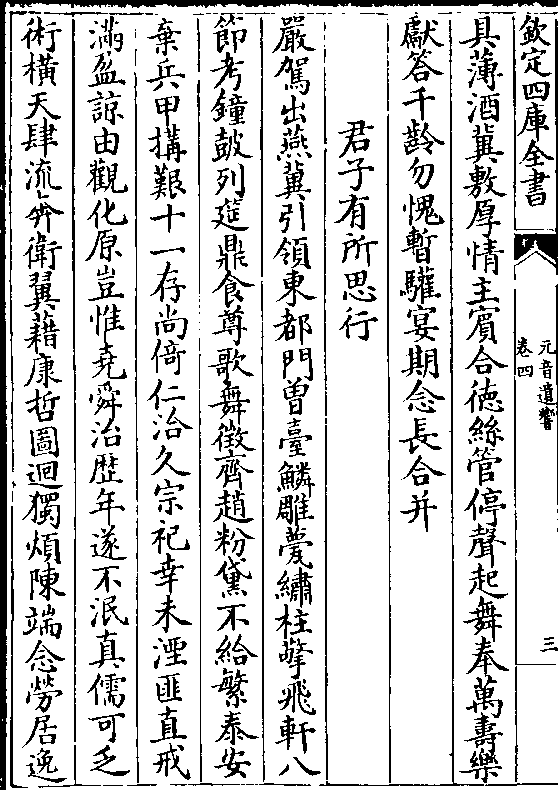 欽定四庫全書
元音遺響
卷四
三
具薄酒冀敷厚情主賓合徳絲管停聲起舞奉萬壽樂
獻答千齡勿愧暫驩宴期念長合并
君子有所思行
嚴駕出燕冀引領東都門曽臺鱗雕甍繡柱擎飛軒八
節考鐘鼓列筵鼎食尊歌舞徴齊趙粉黛不給繁泰安
棄兵甲搆艱十一存尚倚仁治久宗祀幸未湮匪直戒
滿盈諒由觀化原豈惟堯舜治歴年遂不泯真儒可乏
術橫天肆流奔衛翼藉康哲圖迴獨煩陳端念勞居逸